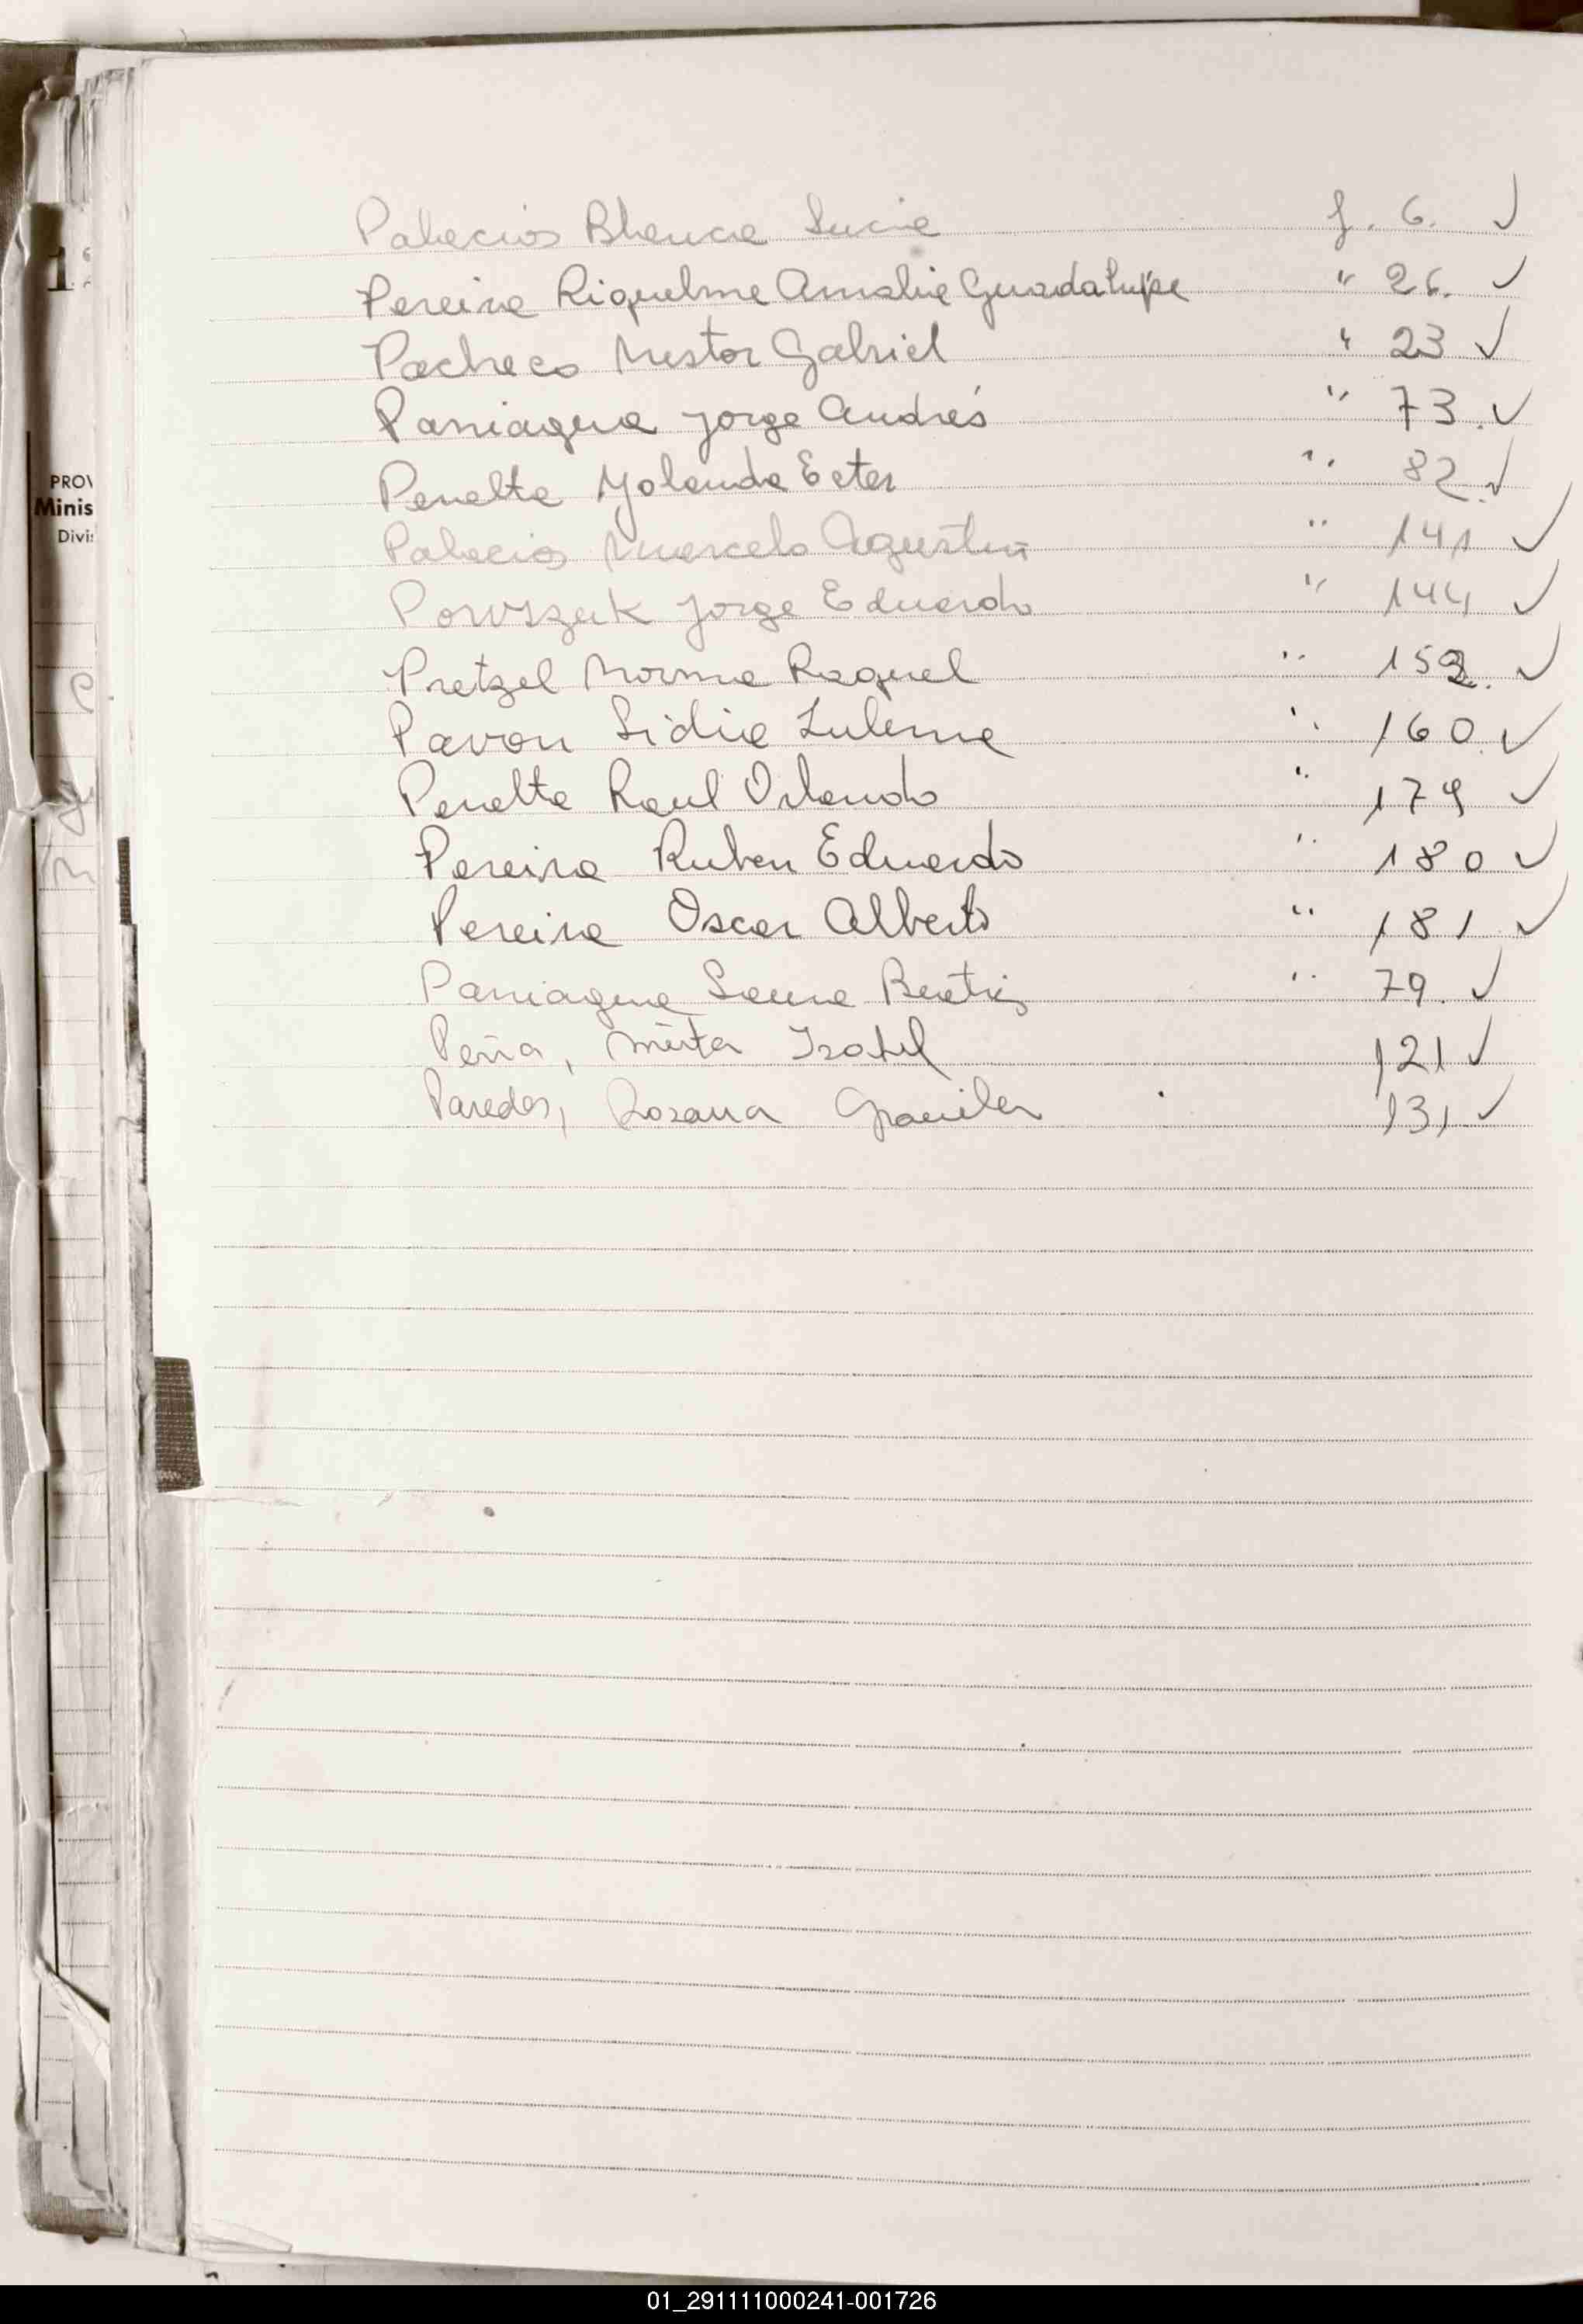 Palacios Blanca Lucia f. 6. ✓
Pereira Riquelme Amalia Guadalupe " 26. ✓
Pacheco Nestor Gabriel " 23 ✓
Paniagua Jorge Andrés " 73. ✓
Peralta Yolanda Ester " 82. ✓
Palacios Marcelo Agustin " 141 ✓
Powszuk Jorge Eduardo " 144 ✓
Pretzel Norma Raquel " 152. ✓
Pavon Lidia Zulema " 160. ✓
Peralta Raul Orlando " 179 ✓
Pereira Ruben Eduardo " 180 ✓
Pereira Oscar Alberto " 181 ✓
Paniagua Laura Beatriz " 79. ✓
Peña, Mirta Isabel 121 ✓
Paredes, Rosana Graciela 131 ✓
PROV
Minis
Divi
01_291111000241-001726